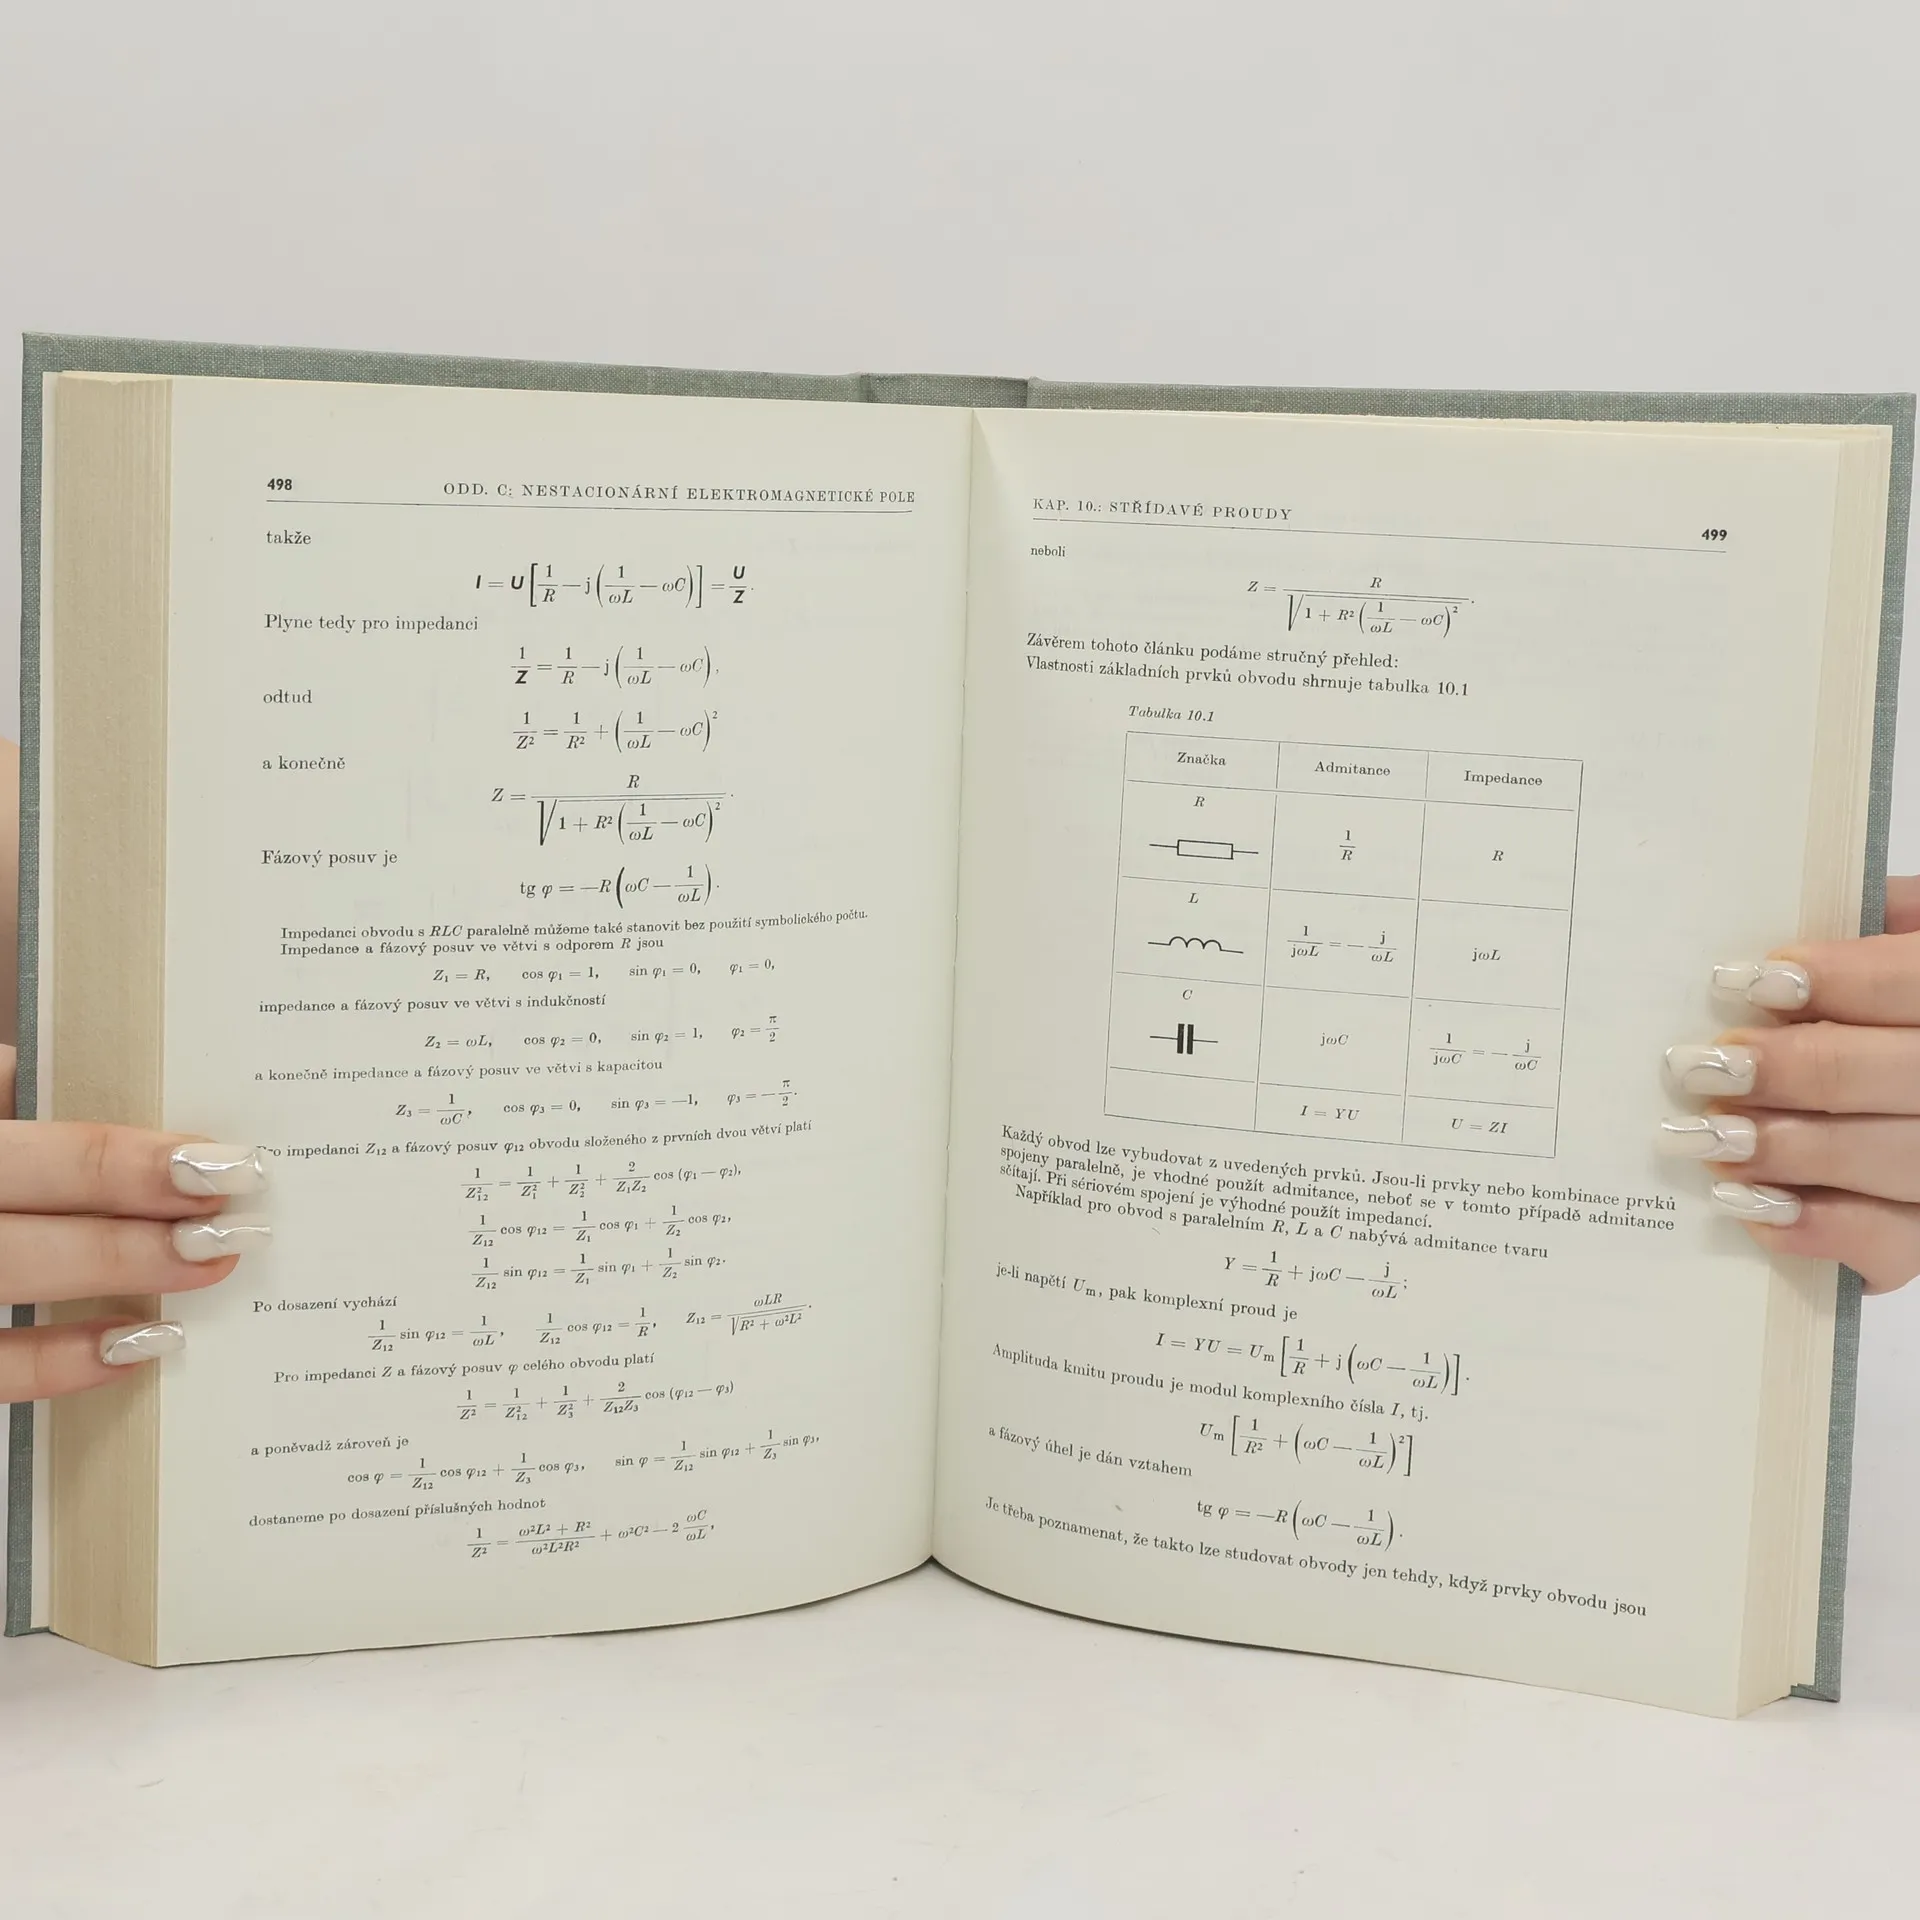 498 ODD. C: NESTACIONÁRNÍ ELEKTROMAGNETICKÉ POLE
takže
I = U [1/R − j (1/ωL − ωC)] = U/Z.
Plyne tedy pro impedanci
1/Z = 1/R − j (1/ωL − ωC),
odtud
1/Z² = 1/R² + (1/ωL − ωC)²
a konečně
Z = R / √(1 + R² (1/ωL − ωC)²).
Fázový posuv je
tg φ = −R (ωC − 1/ωL).
Impedanci obvodu s RLC paralelně můžeme také stanovit bez použití symbolického počtu.
Impedance a fázový posuv ve větvi s odporem R jsou
Z₁ = R, cos φ₁ = 1, sin φ₁ = 0, φ₁ = 0,
impedance a fázový posuv ve větvi s indukčností
Z₂ = ωL, cos φ₂ = 0, sin φ₂ = 1, φ₂ = π/2
a konečně impedance a fázový posuv ve větvi s kapacitou
Z₃ = 1/ωC, cos φ₃ = 0, sin φ₃ = −1, φ₃ = −π/2.
Pro impedanci Z₁₂ a fázový posuv φ₁₂ obvodu složeného z prvních dvou větví platí
1/Z₁₂² = 1/Z₁² + 1/Z₂² + 2/Z₁Z₂ cos (φ₁ − φ₂),
1/Z₁₂ cos φ₁₂ = 1/Z₁ cos φ₁ + 1/Z₂ cos φ₂,
1/Z₁₂ sin φ₁₂ = 1/Z₁ sin φ₁ + 1/Z₂ sin φ₂.
Po dosazení vychází
1/Z₁₂ sin φ₁₂ = 1/ωL, 1/Z₁₂ cos φ₁₂ = 1/R, Z₁₂ = ωLR / √(R² + ω²L²).
Pro impedanci Z a fázový posuv φ celého obvodu platí
1/Z² = 1/Z₁₂² + 1/Z₃² + 2/Z₁₂Z₃ cos (φ₁₂ − φ₃)
a poněvadž zároveň je
cos φ = 1/Z₁₂ cos φ₁₂ + 1/Z₃ cos φ₃, sin φ = 1/Z₁₂ sin φ₁₂ + 1/Z₃ sin φ₃,
dostaneme po dosazení příslušných hodnot
1/Z² = (ω²L² + R²)/(ω²L²R²) + ω²C² − 2 ωC/ωL,
KAP. 10.: STŘÍDAVÉ PROUDY 499
neboli
Z = R / √(1 + R² (1/ωL − ωC)²).
Závěrem tohoto článku podáme stručný přehled:
Vlastnosti základních prvků obvodu shrnuje tabulka 10.1
Tabulka 10.1
Značka Admitance Impedance
R 1/R R
L 1/jωL = − j/ωL jωL
C jωC 1/jωC = − j/ωC
I = YU U = ZI
Každý obvod lze vybudovat z uvedených prvků. Jsou-li prvky nebo kombinace prvků
spojeny paralelně, je vhodné použít admitance, neboť se v tomto případě admitance
sčítají. Při sériovém spojení je výhodné použít impedancí.
Například pro obvod s paralelním R, L a C nabývá admitance tvaru
Y = 1/R + jωC − j/ωL;
je-li napětí Uₘ, pak komplexní proud je
I = YU = Uₘ [1/R + j (ωC − 1/ωL)].
Amplituda kmitu proudu je modul komplexního čísla I, tj.
Uₘ [1/R² + (ωC − 1/ωL)²]
a fázový úhel je dán vztahem
tg φ = −R (ωC − 1/ωL).
Je třeba poznamenat, že takto lze studovat obvody jen tehdy, když prvky obvodu jsou